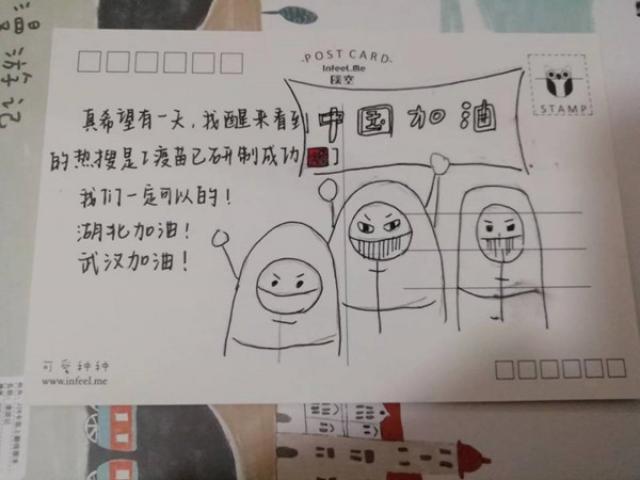 POST CARD
Infeel.Me
STAMP
中国加油
真希望有一天,我醒来看到
的热搜是[疫苗已研制成功 ]
我们一定可以的!
湖北加油!
武汉加油!
可爱种种
www.infeel.me
温